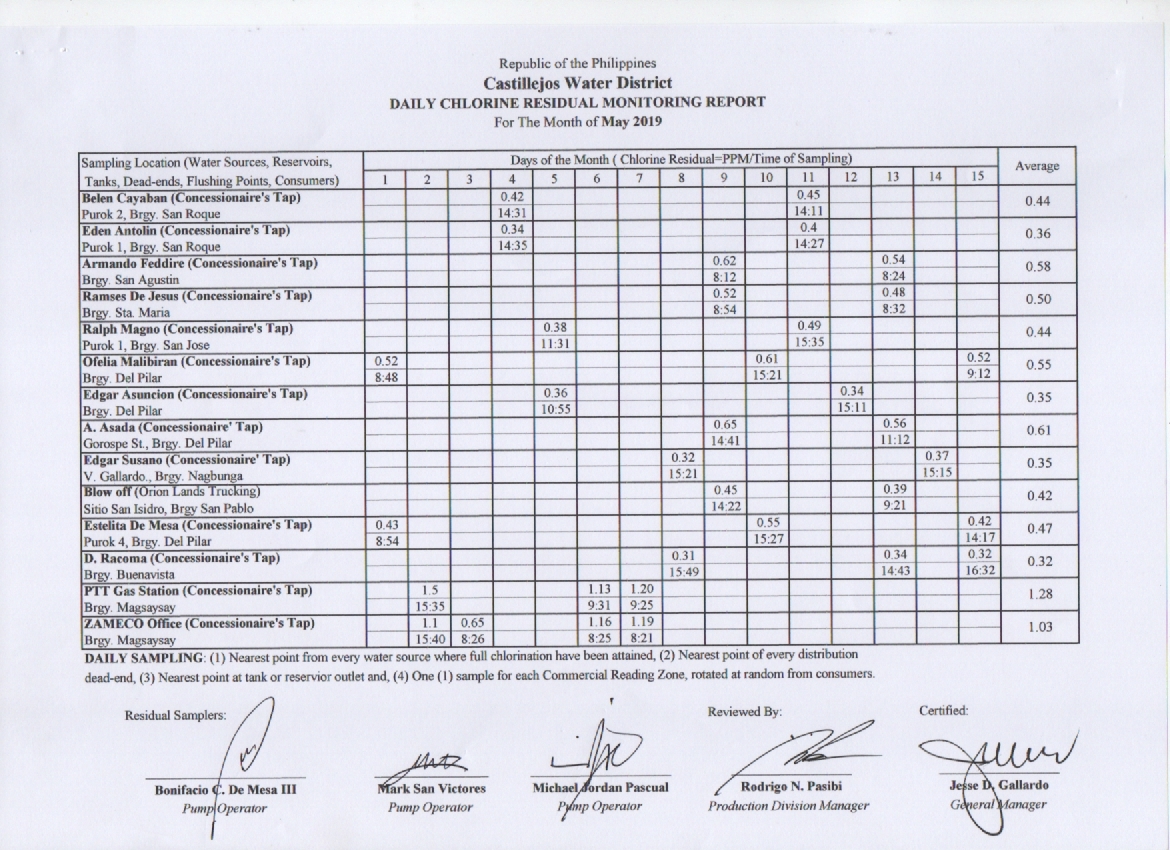 Republic of the Philippines
Castillejos Water District
DAILY CHLORINE RESIDUAL MONITORING REPORT
For The Month of May 2019
Sampling Location (Water Sources, Reservoirs, Days of the Month ( Chlorine Residual=PPM/Time of Sampling) Average
Tanks, Dead-ends, Flushing Points, Consumers) 1 2 3 4 5 6 7 8 9 10 11 12 13 14 15
Belen Cayaban (Concessionaire's Tap) 0.42 0.45 0.44
Purok 2, Brgy. San Roque 14:31 14:11
Eden Antolin (Concessionaire's Tap) 0.34 0.4 0.36
Purok 1, Brgy. San Roque 14:35 14:27
Armando Feddire (Concessionaire's Tap) 0.62 0.54 0.58
Brgy. San Agustin 8:12 8:24
Ramses De Jesus (Concessionaire's Tap) 0.52 0.48 0.50
Brgy. Sta. Maria 8:54 8:32
Ralph Magno (Concessionaire's Tap) 0.38 0.49 0.44
Purok 1, Brgy. San Jose 11:31 15:35
Ofelia Malibiran (Concessionaire's Tap) 0.52 0.61 0.52 0.55
Brgy. Del Pilar 8:48 15:21 9:12
Edgar Asuncion (Concessionaire's Tap) 0.36 0.34 0.35
Brgy. Del Pilar 10:55 15:11
A. Asada (Concessionaire' Tap) 0.65 0.56 0.61
Gorospe St., Brgy. Del Pilar 14:41 11:12
Edgar Susano (Concessionaire' Tap) 0.32 0.37 0.35
V. Gallardo., Brgy. Nagbunga 15:21 15:15
Blow off (Orion Lands Trucking) 0.45 0.39 0.42
Sitio San Isidro, Brgy San Pablo 14:22 9:21
Estelita De Mesa (Concessionaire's Tap) 0.43 0.55 0.42 0.47
Purok 4, Brgy. Del Pilar 8:54 15:27 14:17
D. Racoma (Concessionaire's Tap) 0.31 0.34 0.32 0.32
Brgy. Buenavista 15:49 14:43 16:32
PTT Gas Station (Concessionaire's Tap) 1.5 1.13 1.20 1.28
Brgy. Magsaysay 15:35 9:31 9:25
ZAMECO Office (Concessionaire's Tap) 1.1 0.65 1.16 1.19 1.03
Brgy. Magsaysay 15:40 8:26 8:25 8:21
DAILY SAMPLING: (1) Nearest point from every water source where full chlorination have been attained, (2) Nearest point of every distribution
dead-end, (3) Nearest point at tank or reservior outlet and, (4) One (1) sample for each Commercial Reading Zone, rotated at random from consumers.
Residual Samplers: Reviewed By: Certified:
Bonifacio C. De Mesa III Mark San Victores Michael Jordan Pascual Rodrigo N. Pasibi Jesse D. Gallardo
Pump Operator Pump Operator Pump Operator Production Division Manager General Manager